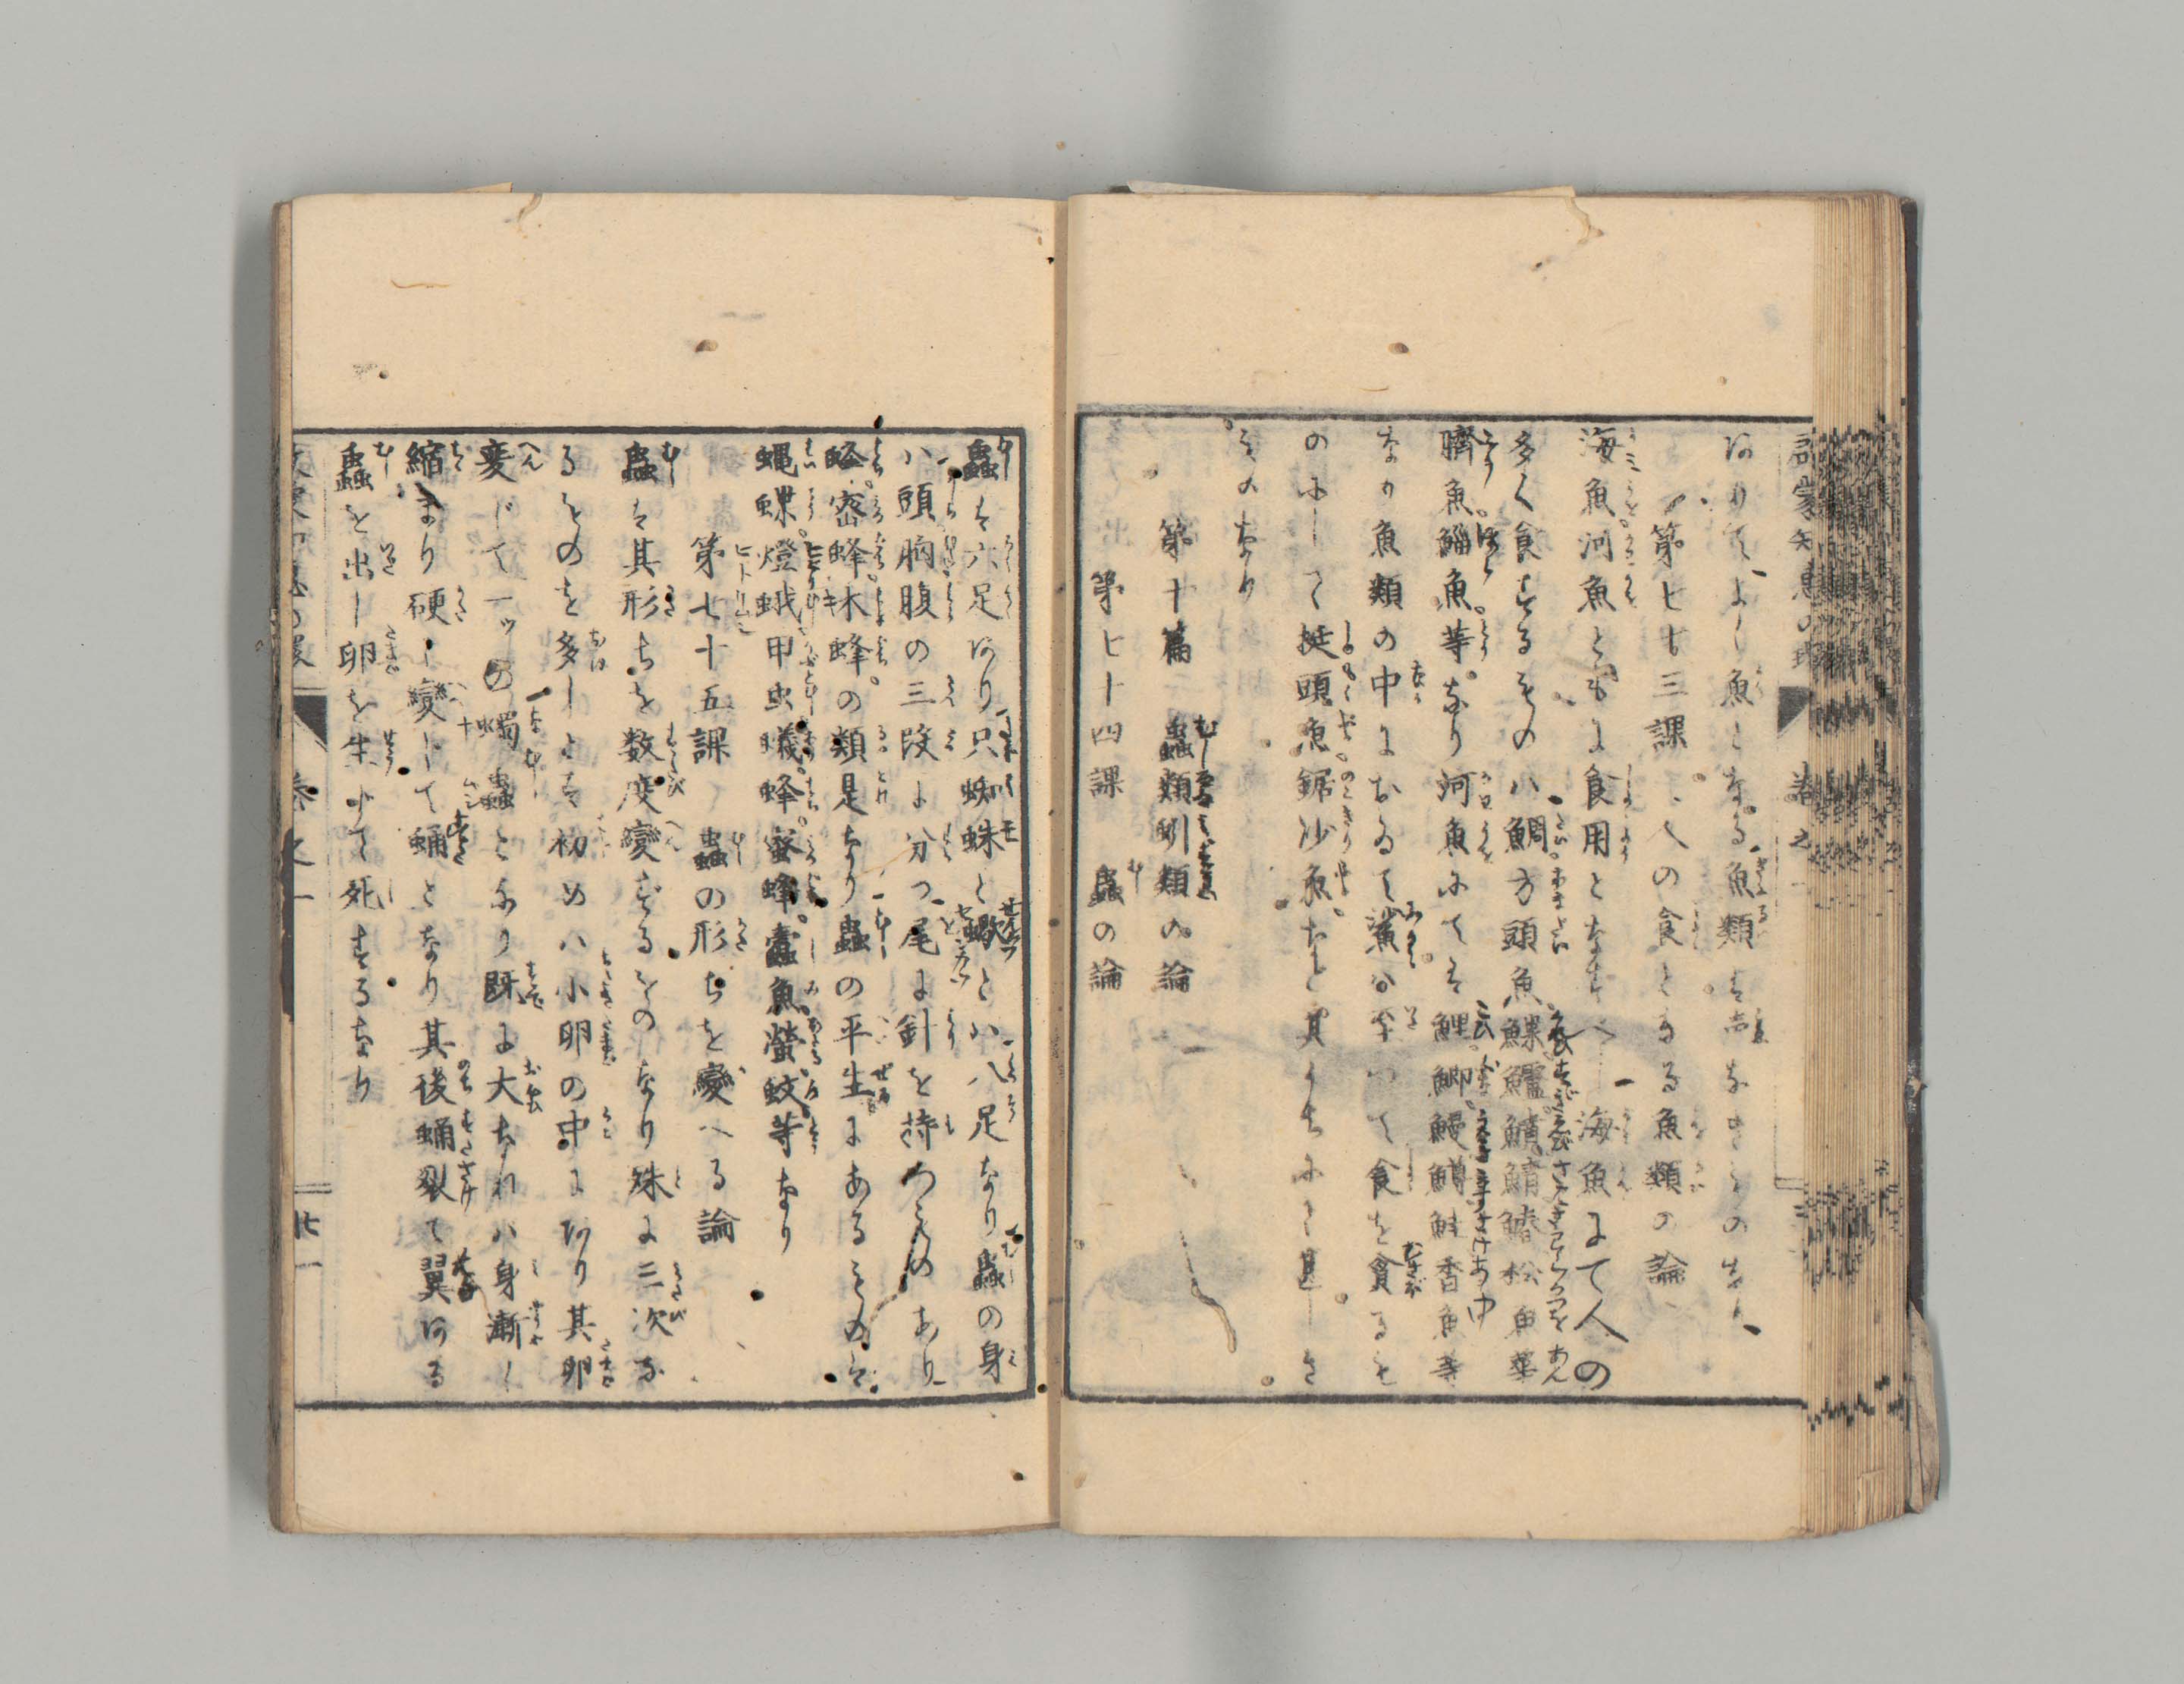 啓蒙知恵の環 巻之一
ありてよし魚となる魚類は声なきもの也
第七十三課 人の食となる魚類の論
海魚河魚ともに食用となすべし海魚にて人の
多く食するものハ鯛方頭魚鰈鱸鱝鯖鰆松魚華
臍魚鯔魚等なり河魚にてハ鯉鯽鰻鱒鮭香魚等
なり魚類の中におゐて鯊ハ至つて食を貪るも
のにして挺頭魚鋸沙魚など其うちにも甚しき
ものなり
第十篇 蟲類斟類の論
第七十四課 蟲の論
蟲は六足あり只蜘蛛と蠍とハ八足なり蟲の身
ハ頭胸腹の三段に分つ尾に針を持つものあり
蜂密蜂木蜂の類是なり蟲の平生にあるものは
蝿蝶燈蛾甲虫蟻蜂蜜蜂蠧魚螢蚊等なり
第七十五課 蟲の形ちを變へる論
蟲は其形ちを数度變ずるものなり殊に三次な
るものを多しとす初めハ小卵の中にあり其卵
変じて一ッの蠋蟲となり既に大なれハ身漸く
縮まり硬く變じて蛹となり其後蛹裂て翼ある
蟲を出し卵を生みて死するなり
巻之一
廿一